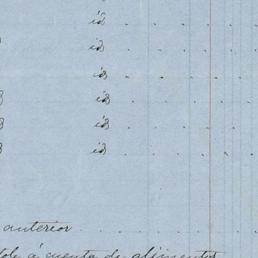 id
id
id
id
id
id
anterior
á cuenta de alimentos